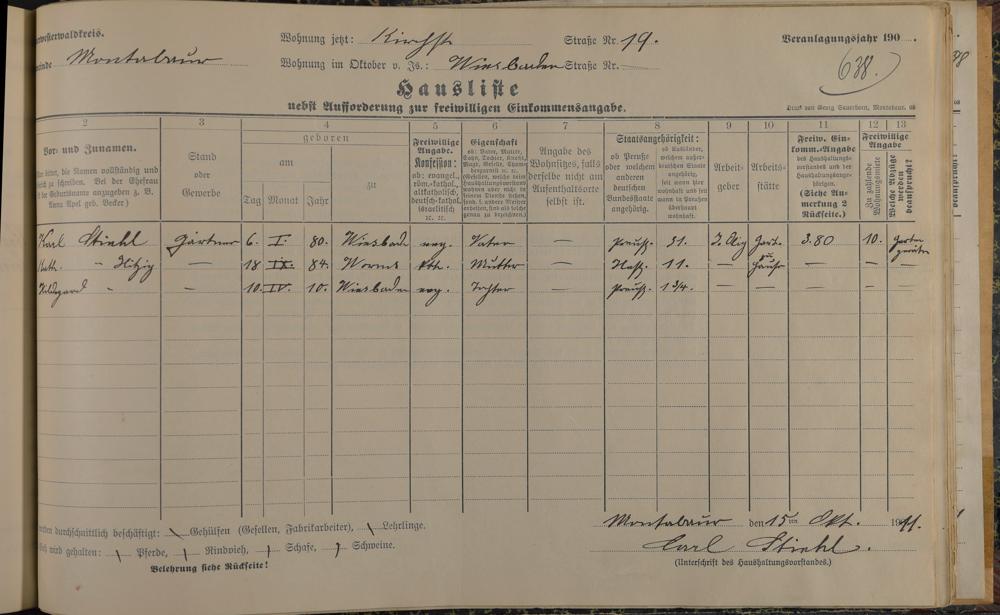 rwesterwaldkreis.
Wohnung jetzt: Kirchstr Straße Nr. 19.
Veranlagungsjahr 190
inde Montabaur
Wohnung im Oktober v. Js.: Wiesbaden Straße Nr.
638.
Hausliste
nebst Aufforderung zur freiwilligen Einkommensangabe.
Druck von Georg Sauerborn, Montabaur.
2 3 4 5 6 7 8 9 10 11 12 13
Vor- und Zunamen.
die Namen vollständig und
zu schreiben. Bei der Ehefrau
der Geburtsname anzugeben z. B.
Anna Apel geb. Becker)
Stand
oder
Gewerbe
geboren
am
zu
Tag Monat Jahr
Freiwillige
Angabe.
Konfession:
ob: evangel.,
röm.-kathol.,
altkatholisch,
deutsch-kathol.,
israelitisch
zc. zc.
Eigenschaft
ob: Vater, Mutter,
Sohn, Tochter, Knecht,
Magd, Geselle,
Angabe des
Wohnsitzes, falls
derselbe nicht am
Aufenthaltsorte
selbst ist.
Staatsangehörigkeit:
ob Preuße
oder welchem
anderen
deutschen
Bundesstaate
angehörig.
ob Ausländer,
welchem außer-
deutschen Staate
angehörig,
seit wann hier
wohnhaft und seit
wann in Preußen
überhaupt
wohnhaft.
Arbeit-
geber
Arbeits-
stätte
Freiw. Ein-
komm.-Angabe
des Haushaltungs-
vorstandes und der
Haushaltungsange-
hörigen.
(Siehe An-
merkung 2
Rückseite.)
Freiwillige
Angabe
Zu zahlende
Wohnungsmiete
Welche Abzüge
werden
beansprucht?
Karl Stiehl Gärtner 6. I. 80. Wiesbad evg. Vater — Preuß. 31. Gart. 3.80 10.
Kath. " Hitzig 18 IX. 84. Worms kth. Mutter — Hess. 11. — — — —
Hildegard " — 10. IV. 10. Wiesbaden evg. Tochter — Preuß. 1 3/4. — — — — —
durchschnittlich beschäftigt: Gehülfen (Gesellen, Fabrikarbeiter), Lehrlinge.
wird gehalten: Pferde, Rindvieh, Schafe, Schweine.
Belehrung siehe Rückseite!
Montabaur den 15ten Okt. 1911.
Carl Stiehl.
(Unterschrift des Haushaltungsvorstandes.)